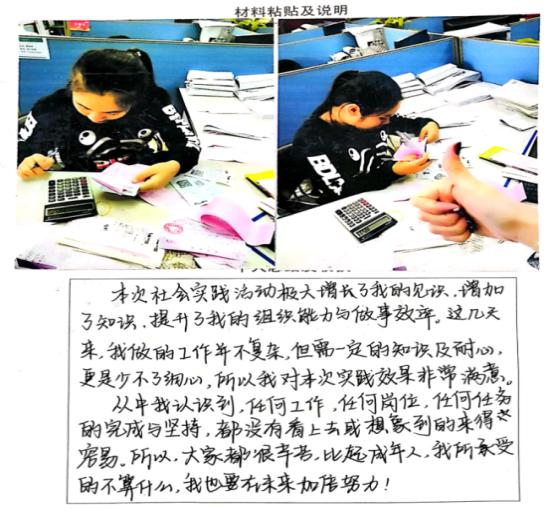 材料粘贴及说明
本次社会实践活动极大增长了我的见识，增加
了知识，提升了我的组织能力与做事效率。这几天
来，我做的工作并不复杂，但需一定的知识及耐心，
更是少不了细心，所以我对本次实践效果非常满意。
从中我认识到，任何工作，任何岗位，任何任务
的完成与坚持，都没有看上去或想象到的来得
容易。所以，大家都很辛苦，比起成年人，我所承受
的不算什么，我也要在未来加倍努力！